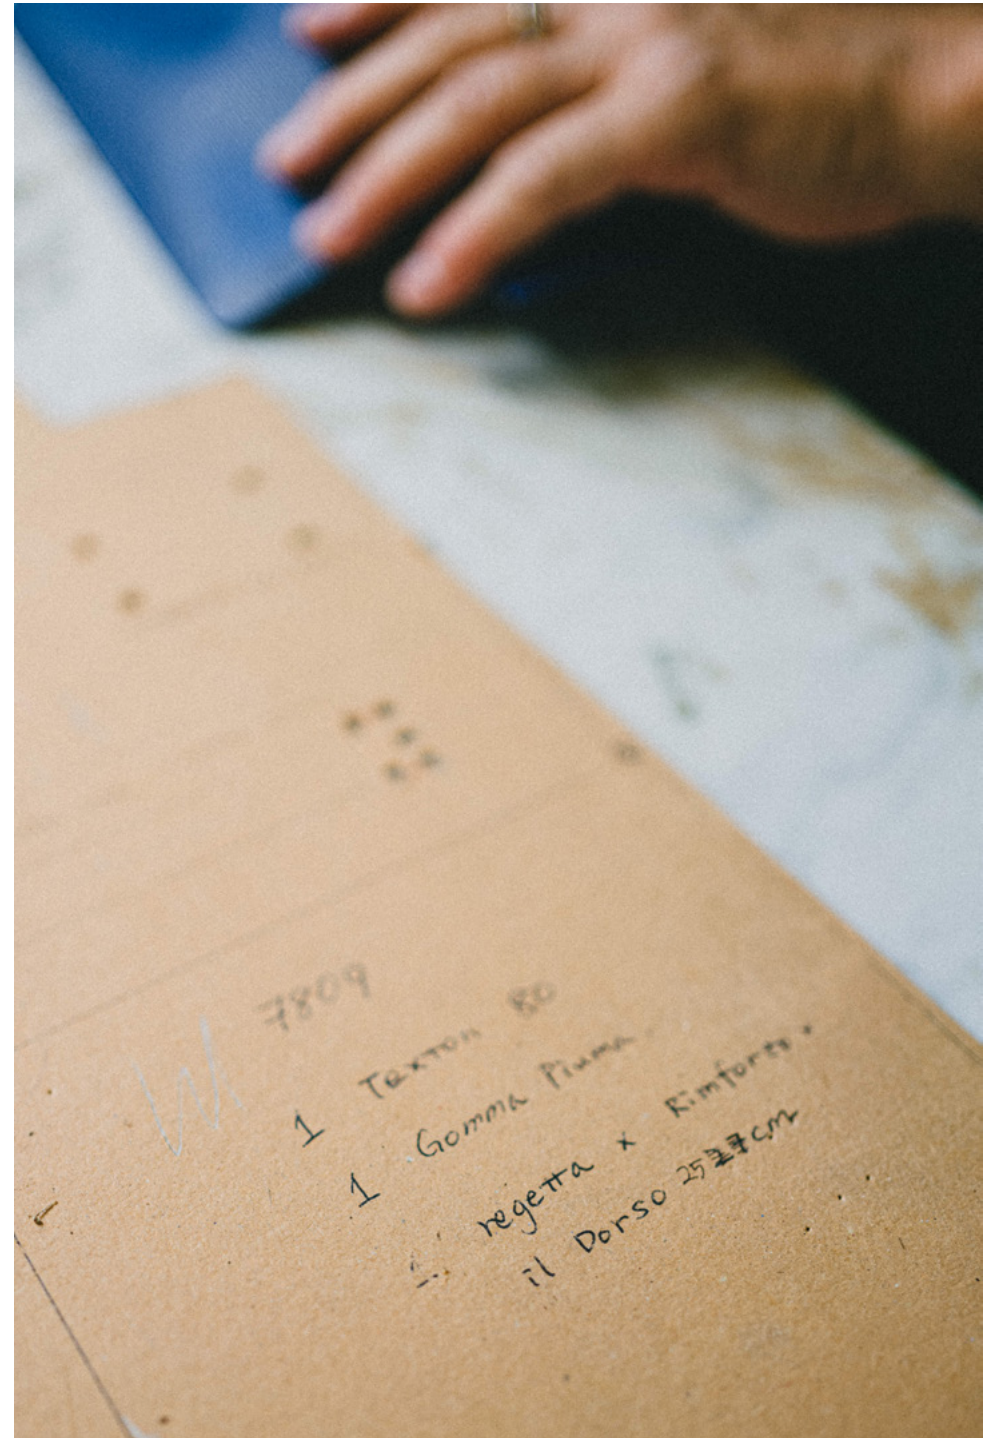 7809
1 Texton 80
1 Gomma Piuma
1 regetta x Rimforzo
il Dorso 25 cm